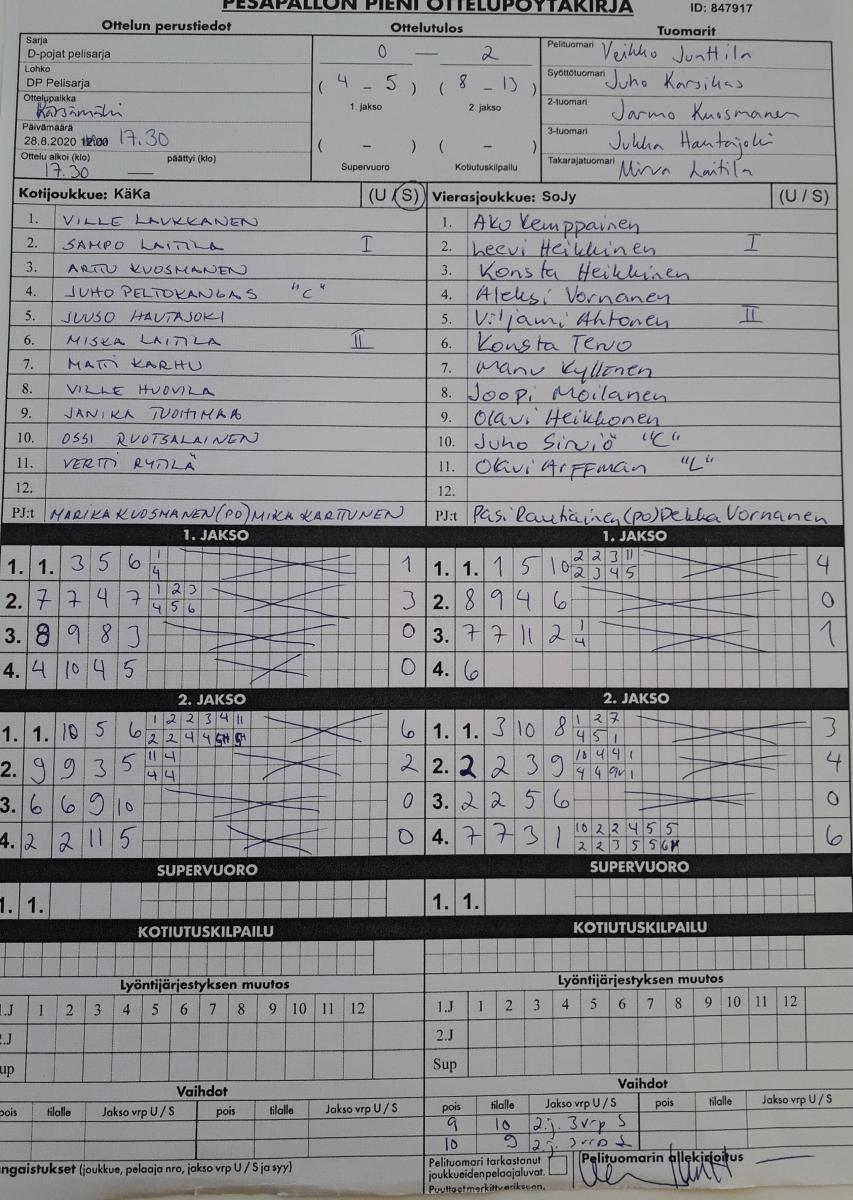 PESÄPALLON PIENI OTTELUPÖYTÄKIRJA ID: 847917
Ottelun perustiedot Ottelutulos Tuomarit
Sarja
D-pojat pelisarja
Lohko
DP Pelisarja
Ottelupaikka
Kärsämäki
Päivämäärä
28.8.2020 17.30
Ottelu alkoi (klo) päättyi (klo)
17.30 —
0 — 2
( 4 - 5 ) ( 8 - 13 )
1. jakso 2. jakso
( - ) ( - )
Supervuoro Kotiutuskilpailu
Pelituomari Veikko Junttila
Syöttötuomari Juho Karsikas
2-tuomari Jarmo Kuosmanen
3-tuomari Jukka Hautajoki
Takarajatuomari Mirva Laitila
Kotijoukkue: KäKa (U / S)
1. VILLE LAUKKANEN
2. SAMPO LAITILA I
3. ARTTU KUOSMANEN
4. JUHO PELTOKANGAS "C"
5. JUUSO HAUTAJOKI
6. MISKA LAITILA II
7. MATTI KARHU
8. VILLE HUOVILA
9. JANIKA TUOHIMAA
10. OSSI RUOTSALAINEN
11. VERTTI RYTILÄ
12.
PJ:t MARIKA KUOSMANEN (PO) MIKA KARTTUNEN
Vierasjoukkue: SoJy (U / S)
1. Aku Kemppainen
2. Leevi Heikkinen I
3. Konsta Heikkinen
4. Aleksi Vornanen
5. Viljami Ahtonen II
6. Konsta Tervo
7. Manu Kyllönen
8. Joopi Moilanen
9. Olavi Heikkonen
10. Juho Sirviö "C"
11. Olavi Arffman "L"
12.
PJ:t Pasi Rautiainen (po) Pekka Vornanen
1. JAKSO
1. 1. 3 5 6 1 1
4
2. 7 7 4 7 1 2 3 3
4 5 6
3. 8 9 8 3 0
4. 4 10 4 5 0
1. JAKSO
1. 1. 1 5 10 2 2 3 11 4
2 3 4 5
2. 8 9 4 6 0
3. 7 7 11 2 1 1
4
4. 6
2. JAKSO
1. 1. 10 5 6 1 2 2 3 4 11 6
2 2 4 4
2. 9 9 3 5 11 4 2
4 4
3. 6 6 9 10 0
4. 2 2 11 5 0
2. JAKSO
1. 1. 3 10 8 1 2 7 3
4 5 1
2. 2 2 3 9 10 4 4 1 4
4 4
3. 2 2 5 6 0
4. 7 7 3 1 10 2 2 4 5 5 6
2 2 3 5 5
SUPERVUORO
1. 1.
SUPERVUORO
1. 1.
KOTIUTUSKILPAILU
KOTIUTUSKILPAILU
Lyöntijärjestyksen muutos
1.J 1 2 3 4 5 6 7 8 9 10 11 12
2.J
Sup
Lyöntijärjestyksen muutos
1.J 1 2 3 4 5 6 7 8 9 10 11 12
2.J
Sup
Vaihdot
pois tilalle Jakso vrp U / S pois tilalle Jakso vrp U / S
Vaihdot
pois tilalle Jakso vrp U / S pois tilalle Jakso vrp U / S
9 10 2.j. 3 vrp S
10 9 2.j. 3 vrp S
ngaistukset (joukkue, pelaaja nro, jakso vrp U / S ja syy)
Pelituomari tarkastanut
joukkueiden pelaajaluvat.
Puutteet merkitty erikseen.
Pelituomarin allekirjoitus